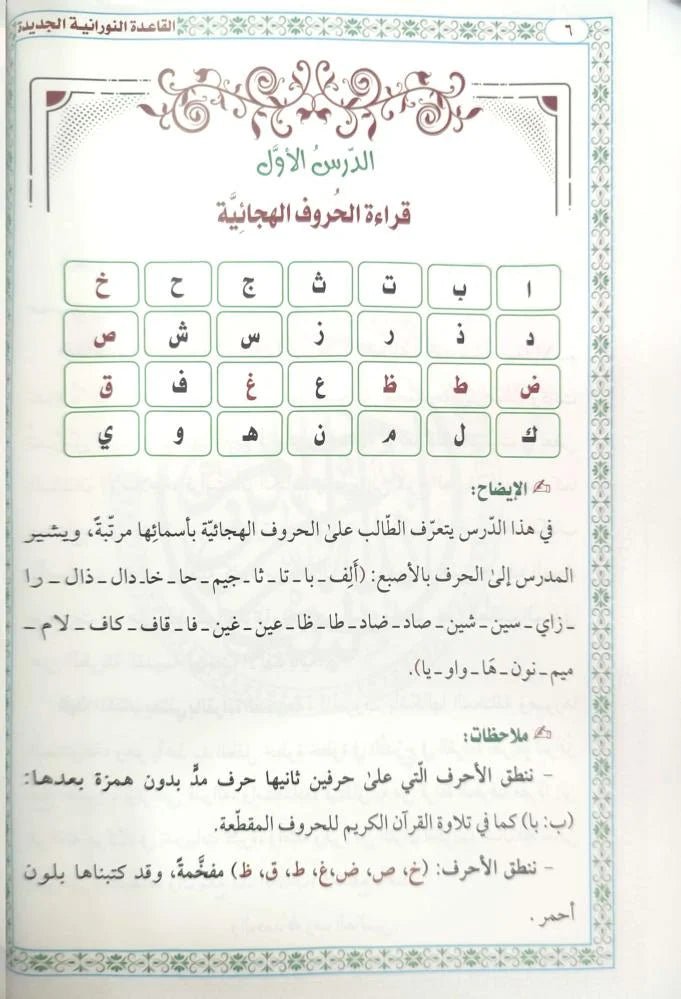 ٦
القاعدة النورانية الجديدة
الدّرسُ الأوَّل
قراءة الحُروف الهجائيَّة
ا ب ت ث ج ح خ
د ذ ر ز س ش ص
ض ط ظ ع غ ف ق
ك ل م ن هـ و ي
الإيضاح:
في هذا الدّرس يتعرّف الطّالب على الحروف الهجائيّة بأسمائِها مرتّبةً، ويشير
المدرس إلى الحرف بالأصبع: (أَلِف ـ با ـ تا ـ ثا ـ جيم ـ حا ـ خا ـ دال ـ ذال ـ را
ـ زاي ـ سين ـ شين ـ صاد ـ ضاد ـ طا ـ ظا ـ عين ـ غين ـ فا ـ قاف ـ كاف ـ لام ـ
ميم ـ نون ـ هَا ـ واو ـ يا).
ملاحظات:
- ننطق الأحرف الّتي على حرفين ثانيها حرف مدٍّ بدون همزة بعدها:
(ب: با) كما في تلاوة القرآن الكريم للحروف المقطّعة.
- ننطق الأحرف: (خ، ص، ض،غ، ط، ق، ظ) مفخَّمةً، وقد كتبناها بلون
أحمر .